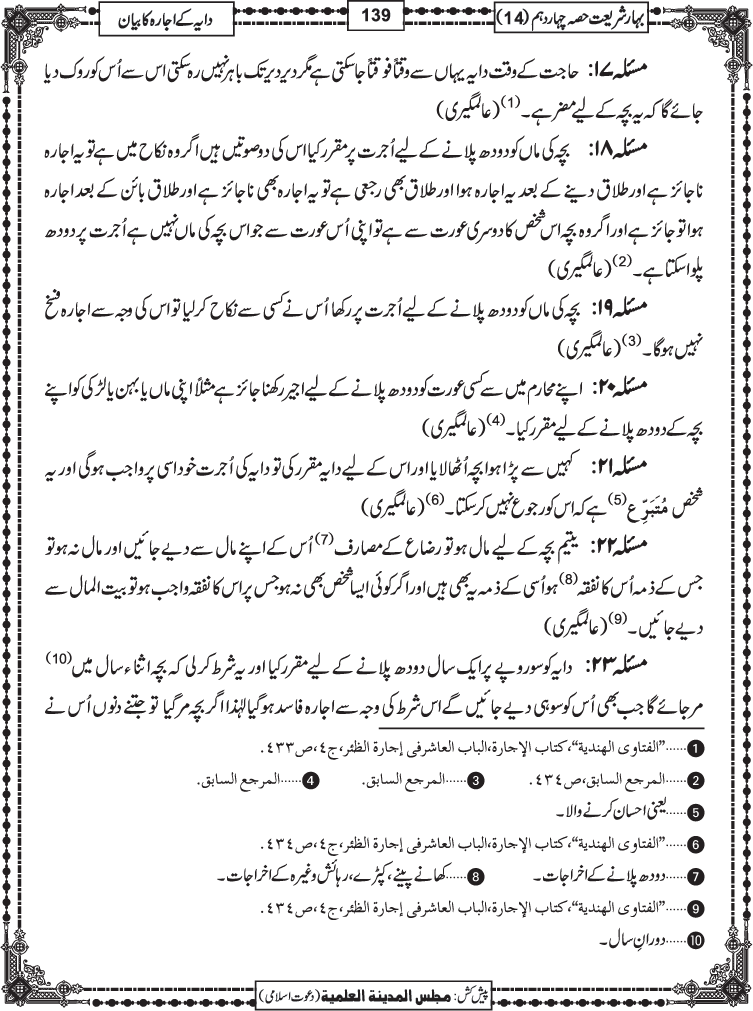 بہارِ شریعت حصہ چہاردہم (14)
139
دایہ کے اجارہ کا بیان
مسئلہ ۱۷: حاجت کے وقت دایہ یہاں سے وقتاً فوقتاً جاسکتی ہے مگر دیر دیر تک باہر نہیں رہ سکتی اس سے اُس کو روک دیا
جائے گا کہ یہ بچہ کے لیے مضر ہے۔(1) (عالمگیری)
مسئلہ ۱۸: بچہ کی ماں کو دودھ پلانے کے لیے اُجرت پر مقرر کیا اس کی دو صورتیں ہیں اگر وہ نکاح میں ہے تو یہ اجارہ
ناجائز ہے اور طلاق دینے کے بعد یہ اجارہ ہوا اور طلاق بھی رجعی ہے تو یہ اجارہ بھی ناجائز ہے اور طلاق بائن کے بعد اجارہ
ہوا تو جائز ہے اور اگر وہ بچہ اس شخص کا دوسری عورت سے ہے تو اپنی اُس عورت سے جو اس بچہ کی ماں نہیں ہے اُجرت پر دودھ
پلوا سکتا ہے۔(2) (عالمگیری)
مسئلہ ۱۹: بچہ کی ماں کو دودھ پلانے کے لیے اُجرت پر رکھا اُس نے کسی سے نکاح کرلیا تو اس کی وجہ سے اجارہ فسخ
نہیں ہوگا۔(3) (عالمگیری)
مسئلہ ۲۰: اپنے محارم میں سے کسی عورت کو دودھ پلانے کے لیے اجیر رکھنا جائز ہے مثلاً اپنی ماں یا بہن یا لڑکی کو اپنے
بچہ کے دودھ پلانے کے لیے مقرر کیا۔(4) (عالمگیری)
مسئلہ ۲۱: کہیں سے پڑا ہوا بچہ اُٹھا لایا اور اس کے لیے دایہ مقرر کی تو دایہ کی اُجرت خود اسی پر واجب ہوگی اور یہ
شخص مُتَبَرِّع(5) ہے کہ اس کو رجوع نہیں کرسکتا۔(6) (عالمگیری)
مسئلہ ۲۲: یتیم بچہ کے لیے مال ہو تو رضاع کے مصارف(7) اُس کے اپنے مال سے دیے جائیں اور مال نہ ہو تو
جس کے ذمہ اُس کا نفقہ(8) ہو اُسی کے ذمہ یہ بھی ہیں اور اگر کوئی ایسا شخص بھی نہ ہو جس پر اس کا نفقہ واجب ہو تو بیت المال سے
دیے جائیں۔(9) (عالمگیری)
مسئلہ ۲۳: دایہ کو سو روپے پر ایک سال دودھ پلانے کے لیے مقرر کیا اور یہ شرط کرلی کہ بچہ اثناء سال میں(10)
مر جائے گا جب بھی اُس کو سو ہی دیے جائیں گے اس شرط کی وجہ سے اجارہ فاسد ہوگیا لہٰذا اگر بچہ مر گیا تو جتنے دنوں اُس نے
1 ......"الفتاوی الهندیة"، کتاب الإجارة،الباب العاشر فی إجارة الظئر،ج٤،ص٤٣٣.
2 ......المرجع السابق،ص٤٣٤. 3 ......المرجع السابق. 4 ......المرجع السابق.
5 ......یعنی احسان کرنے والا۔
6 ......"الفتاوی الهندیة"، کتاب الإجارة،الباب العاشر فی إجارة الظئر،ج٤،ص٤٣٤.
7 ......دودھ پلانے کے اخراجات۔ 8 ......کھانے پینے، کپڑے، رہائش وغیرہ کے اخراجات۔
9 ......"الفتاوی الهندیة"، کتاب الإجارة،الباب العاشر فی إجارة الظئر،ج٤،ص٤٣٤.
10 ......دورانِ سال۔
پیش کش: مجلس المدینة العلمیة (دعوت اسلامی)